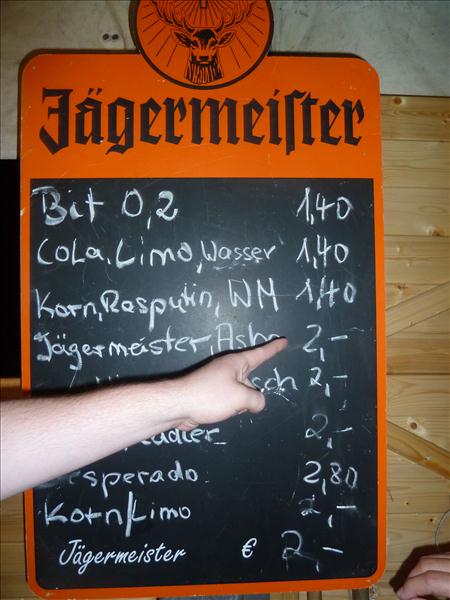 Jägermeister
Bit 0,2 1,40
Cola, Limo, Wasser 1,40
Korn, Rasputin, WM 1,40
Jägermeister, 2,-
2,-
2,-
2,80
Korn/Limo 2,-
Jägermeister € 2,-